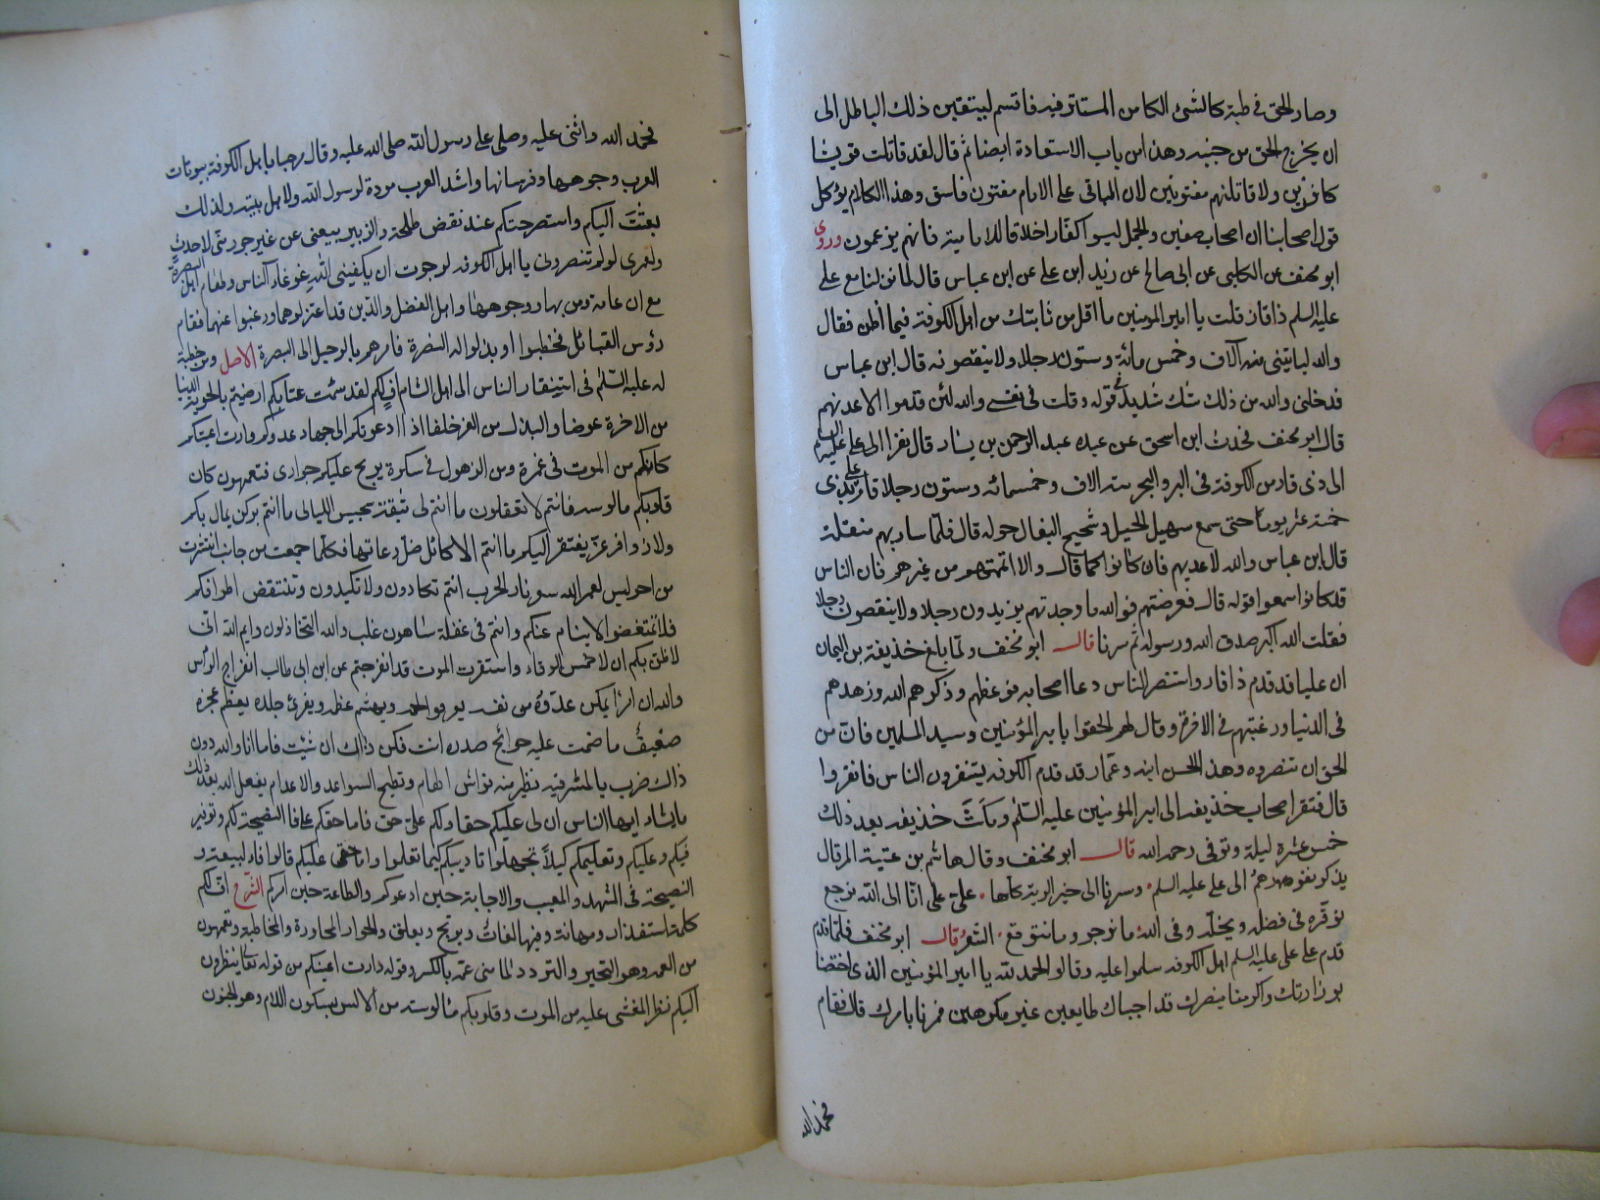 وصار الحق في طية كالشئ الكامن المستتر فيه فاقسم لينقبن ذلك الباطل الى
ان يخرج الحق من جنبه وهذا من باب الاستعادة ايضا ثم قال لقد قاتلت قريشا
كافرين ولاقاتلنهم مفتونين لان الباقى على الامام مفتون فاسق وهذا الكلام يؤكد
قول اصحابنا ان اصحاب صفين والجمل ليسوا كفارا خلافا للامامية فانهم يزعمون وروى
ابو مخنف عن الكلبى عن ابى صالح عن زيد ابن على عن ابن عباس قال لما نزلنا مع على
عليه السلم ذا قار قلت يا امير المومنين ما اقل من ثابتك من اهل الكوفة فيما اظن فقال
والله لياتينى منه آلاف وخمس مائة وستون رجلا ولا ينقصونه قال ابن عباس
فدخلنى والله من ذلك شك شديد فى قوله وقلت فى نفسى والله لئن قدموا لاعدنهم
قال ابو مخنف فحدث ابن اسحق عن عمه عبد الرحمن بن يسار قال نفر الى على عليه السلم
الى ذى قار من الكوفة فى البر والبحر ستة الاف وخمسمائه وستون رجلا قام على بذى
خمسة عشر يوما حتى سمع سهيل الخيل وشحيح البغال حوله قال فلما سار بهم منقلة
قال ابن عباس والله لاعدنهم فان كانوا كما قال والا اتممتهم من غيرهم فان الناس
قد كانوا سمعوا قوله قال فعرضتهم فوالله ما وجدتهم يزيدون رجلا ولا ينقصون رجلا
فقلت الله اكبر صدق الله ورسوله ثم سرنا قال ابو مخنف ولما بلغ حذيفة بن اليمان
ان عليا قد قدم ذا قار واستنفر الناس دعا اصحابه فوعظهم وذكرهم الله وزهدهم
فى الدنيا ورغبتهم فى الاخرة وقال لهم الحقوا بامير المؤمنين وسيد المسلمين فان من
الحق ان تنصروه وهذا الحسن ابنه وعمار قد قدم الكوفه يستنفرون الناس فانفروا
قال فنفر اصحاب حذيفه الى امير المؤمنين عليه السلم ومكث حذيفه بعد ذلك
خمس عشرة ليلة وتوفى رحمه الله قال ابو مخنف وقال هاشم بن عتبة المرقال
يذكر نفورهم الى على عليه السلم وسرنا الى خير البرية كلها على على انا الى الله نرجع
نوقره فى فضله ونجله وفى الله ما نرجو وما نتوقع الشعر قال ابو مخنف فلما قدم
قدم على على عليه السلم اهل الكوفه سلموا عليه وقالوا الحمد لله يا امير المؤمنين الذى اختصنا
بوزارتك واكرمنا بنصرك قد اجبناك طايعين غير مكرهين فمرنا بامرك قال فقام
فحمد الله
فحمد الله واثنى عليه وصلى على رسول الله صلى الله عليه وقال مرحبا باهل الكوفة بيوتات
العرب وجوهها وفرسانها واشد العرب مودة لرسول الله ولاهل بيته ولذلك
بعثت اليكم واستصرختكم عند نقض طلحة والزبير بيعتى عن غير جور منى لاحدث
ولعمرى لو لم تنصرونى يا اهل الكوفه لرجوت ان يكفينى الله غوغاء الناس وطغام اهل البصرة
مع ان عامة من بها ووجوهها واهل الفضل والدين قد اعتزلوها ورغبوا عنها فقام
رؤس القبائل فخطبوا وبذلوا له النصرة فامرهم بالرحيل الى البصرة الاصل ومن خطبة
له عليه السلم فى استنفار الناس الى اهل الشام اف لكم لقد سئمت عتابكم ارضيتم بالحيوة الدنيا
من الاخرة عوضا والبذل من العز خلفا اذا دعوتكم الى جهاد عدوكم دارت اعينكم
كانكم من الموت فى غمرة ومن الذهول فى سكرة يرتج عليكم حوارى فتعمهون كان
قلوبكم مالوسه فانتم لا تعقلون ما انتم لى بثقة سجيس الليالى ما انتم بركن يمال بكم
ولا زوافر عز يفتقر اليكم ما انتم الا كابل ضل رعاتها فكلما جمعت من جانب انتشرت
من اخر لبئس لعمر الله سعر نار الحرب انتم تكادون ولا تكيدون وتنتقض اطرافكم
فلا تمتعضون لا ينام عنكم وانتم فى غفلة ساهون غلب والله المتخاذلون وايم الله انى
لاظن بكم ان لو حمس الوغاء واستحر الموت قد انفرجتم عن ابن ابى طالب انفراج الرأس
والله ان امرا يمكن عدوه من نفسه يعرق لحمه ويهشم عظمه ويفرى جلده لعظيم عجزه
ضعيف ما ضمت عليه جوانح صدره انت فكن ذاك ان شئت فاما انا والله دون
ذاك ضرب بالمشرفيه تطير منه فراش الهام وتطيح السواعد والاقدام يفعل الله بعد ذلك
ما يشاء ايها الناس ان لى عليكم حقا ولكم على حق فاما حقكم على فالنصيحة لكم وتوفير
فيكم وعليكم وتعليمكم كيلا تجهلوا وتاديبكم كيما تعلموا واما حقى عليكم فالوفاء بالبيعة و
النصيحة فى المشهد والمغيب والاجابة حين ادعوكم والطاعة حين امركم الشرح اف لكم
كلمة استقذار ومهانة وفيها لغات ويرتج ويغلق والحوار المحاورة والمخاطبة وتعمهون
من العمه وهو التحير والتردد الماضى عمه بالكسر وقوله دارت اعينكم من قوله تعالى ينظرون
اليكم نظر المغشى عليه من الموت وقلوبكم مالوسته من الالس بسكون اللام وهو الجنون